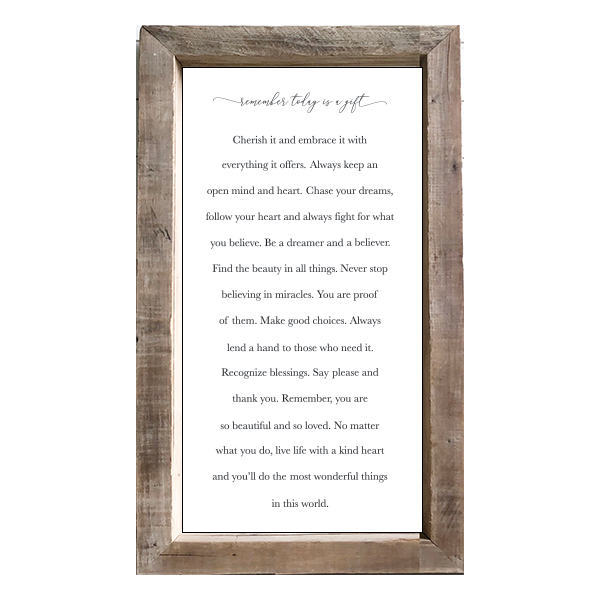 remember today is a gift
Cherish it and embrace it with
everything it offers. Always keep an
open mind and heart. Chase your dreams,
follow your heart and always fight for what
you believe. Be a dreamer and a believer.
Find the beauty in all things. Never stop
believing in miracles. You are proof
of them. Make good choices. Always
lend a hand to those who need it.
Recognize blessings. Say please and
thank you. Remember, you are
so beautiful and so loved. No matter
what you do, live life with a kind heart
and you'll do the most wonderful things
in this world.